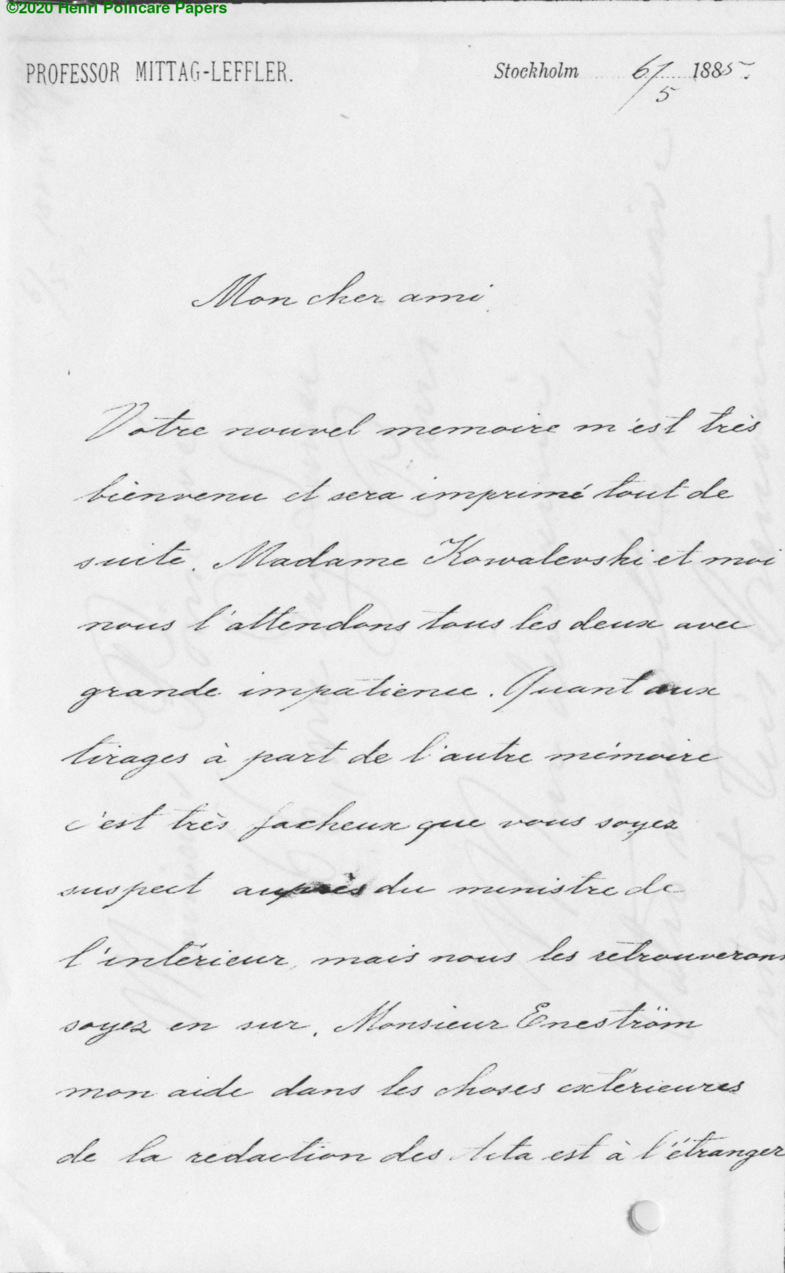 ©2020 Henri Poincaré Papers
PROFESSOR MITTAG-LEFFLER.
Stockholm 6/5 1885.
Mon cher ami
Votre nouvel memoire m'est très
bienvenu et sera imprimé tout de
suite. Madame Kowalevski et moi
nous l'attendons tous les deux avec
grande impatience. Quant aux
tirages à part de l'autre mémoire
c'est très facheux que vous soyez
suspect auprès du ministre de
l'intérieur, mais nous les retrouverons
soyez en sur. Monsieur Eneström
mon aide dans les choses extérieures
de la redaction des Acta est à l'étranger